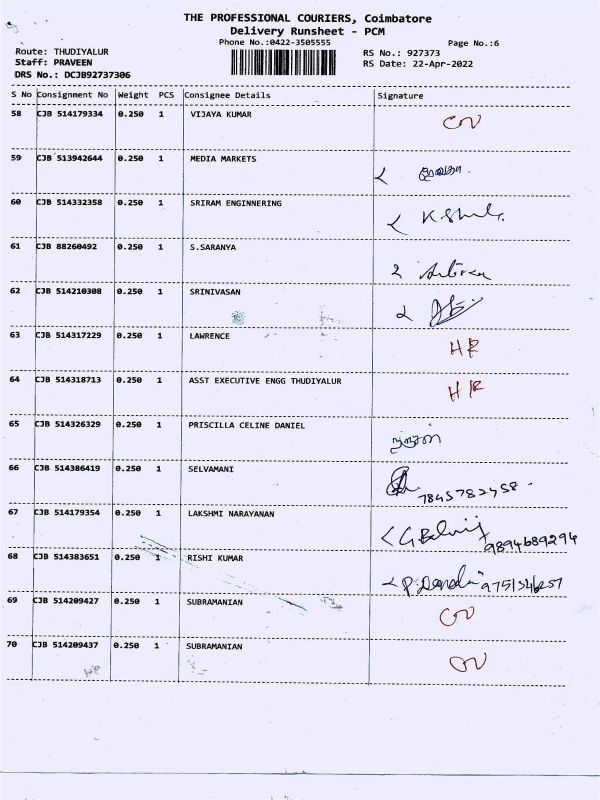 THE PROFESSIONAL COURIERS, Coimbatore
Delivery Runsheet - PCM
Phone No.:0422-3505555 Page No.:6
Route: THUDIYALUR RS No.: 927373
Staff: PRAVEEN RS Date: 22-Apr-2022
DRS No.: DCJB92737306
S No Consignment No Weight PCS Consignee Details Signature
58 CJB 514179334 0.250 1 VIJAYA KUMAR
59 CJB 513942644 0.250 1 MEDIA MARKETS
60 CJB 514332358 0.250 1 SRIRAM ENGINNERING
61 CJB 88260492 0.250 1 S.SARANYA
62 CJB 514210308 0.250 1 SRINIVASAN
63 CJB 514317229 0.250 1 LAWRENCE HR
64 CJB 514318713 0.250 1 ASST EXECUTIVE ENGG THUDIYALUR HR
65 CJB 514326329 0.250 1 PRISCILLA CELINE DANIEL
66 CJB 514386419 0.250 1 SELVAMANI
7845782458
67 CJB 514179354 0.250 1 LAKSHMI NARAYANAN
9894689294
68 CJB 514383651 0.250 1 RISHI KUMAR
69 CJB 514209427 0.250 1 SUBRAMANIAN
70 CJB 514209437 0.250 1 SUBRAMANIAN